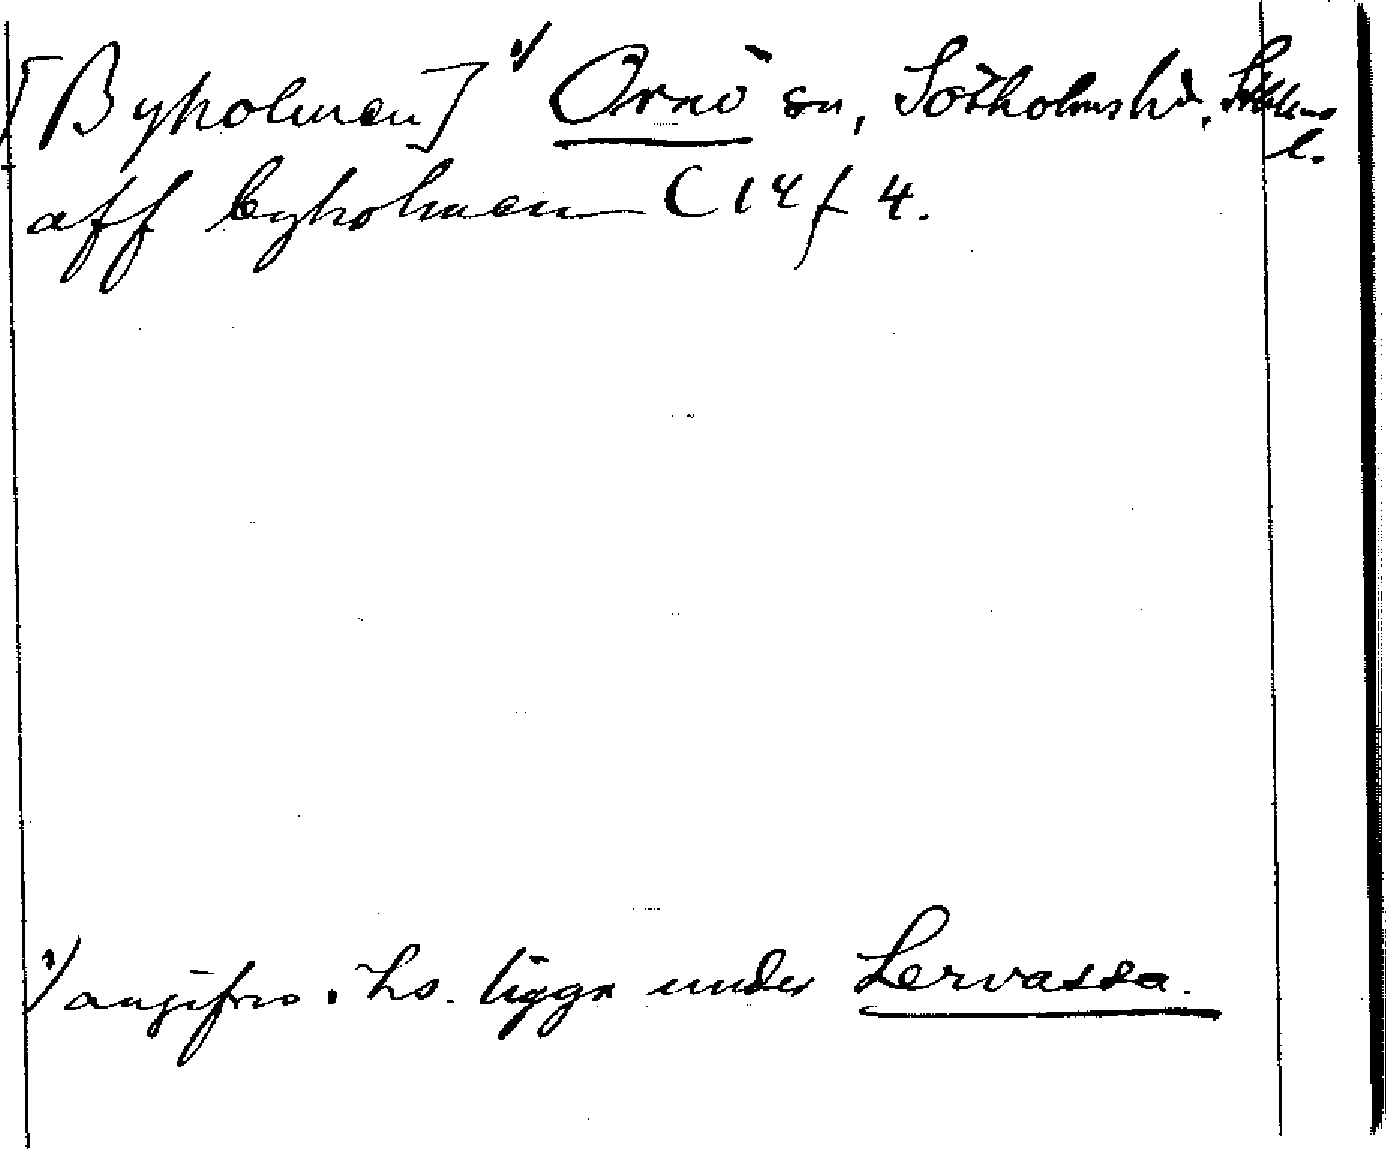 [Byholmen] 1/ Ornö sn, Sotholms hd, Sthlms
l.
aff byholmen C 14 f 4.
1/ angifves i hs. ligga under Lervassa.